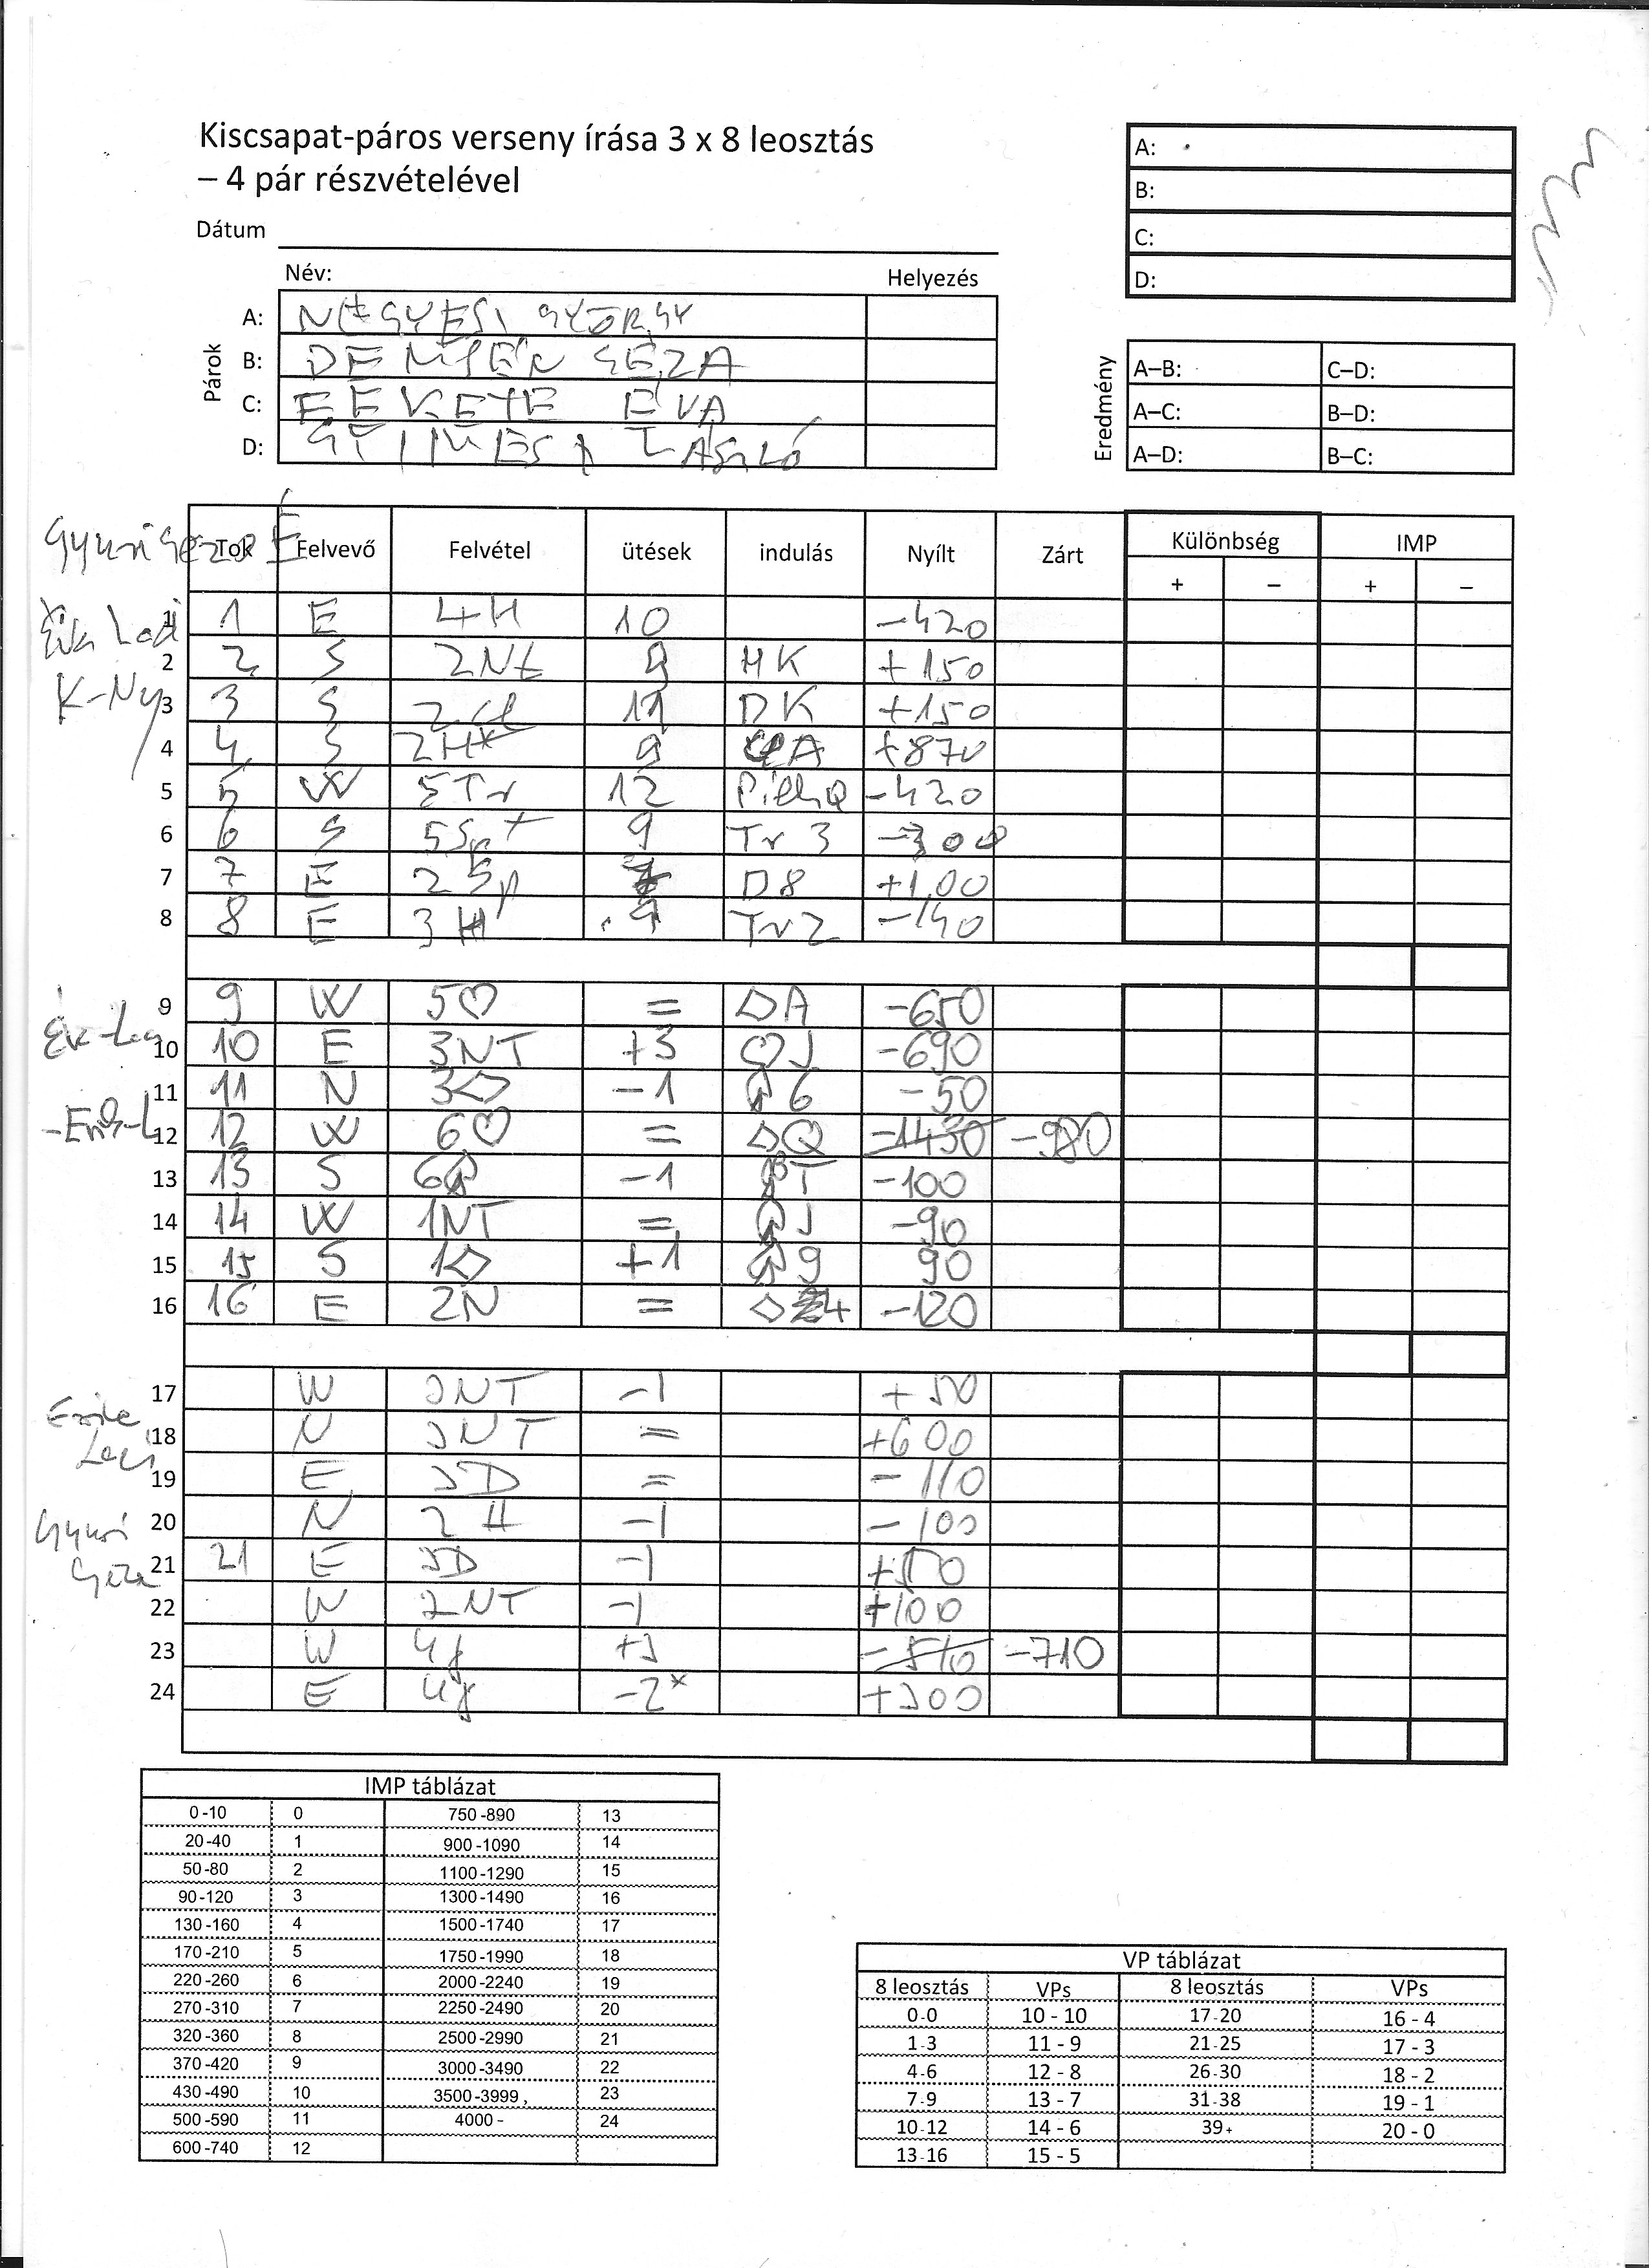 Kiscsapat-páros verseny írása 3 x 8 leosztás
– 4 pár részvételével
Dátum
A:
B:
C:
D:
Név: Helyezés
Párok
A: NÉGYESI GYÖRGY
B: DEMJÉN GÉZA
C: FEKETE ÉVA
D: LÁSZLÓ
Eredmény
A–B: C–D:
A–C: B–D:
A–D: B–C:
Gyuri Géza É
Laci
K-Ny
Tok Felvevő Felvétel ütések indulás Nyílt Zárt Különbség IMP
+ – + –
1 1 E 4H 10 -420
2 2 S 2Nt 9 HK +150
3 3 S 11 DK +150
4 4 S 2H* 9 A +870
5 5 W 5Tr 12 Q -420
6 6 S 5Sp+ 9 Tr 3 -300
7 7 E 2Sp D8 +100
8 8 E 3H 9 Tr2 -140
9 9 W 5♡ = ♢A -650
10 10 E 3NT +3 ♡J -690
11 11 N 3♢ -1 ♤6 -50
12 12 W 6♡ = ♢Q -1430 -980
13 13 S 6♤ -1 ♤T -100
14 14 W 1NT = ♤J -90
15 15 S 1♢ +1 ♤9 90
16 16 E 2N = ♢4 -120
17 W 3NT -1 +50
18 N 3NT = +600
19 E 3D = -110
20 N 2H -1 -100
21 21 E 3D -1 +50
22 W 2NT -1 +100
23 W +3 -510 -710
24 E -2* +300
Laci
Gyuri
Géza
IMP táblázat
0-10 0 750-890 13
20-40 1 900-1090 14
50-80 2 1100-1290 15
90-120 3 1300-1490 16
130-160 4 1500-1740 17
170-210 5 1750-1990 18
220-260 6 2000-2240 19
270-310 7 2250-2490 20
320-360 8 2500-2990 21
370-420 9 3000-3490 22
430-490 10 3500-3999, 23
500-590 11 4000- 24
600-740 12
VP táblázat
8 leosztás VPs 8 leosztás VPs
0-0 10 - 10 17-20 16 - 4
1-3 11 - 9 21-25 17 - 3
4-6 12 - 8 26-30 18 - 2
7-9 13 - 7 31-38 19 - 1
10-12 14 - 6 39+ 20 - 0
13-16 15 - 5